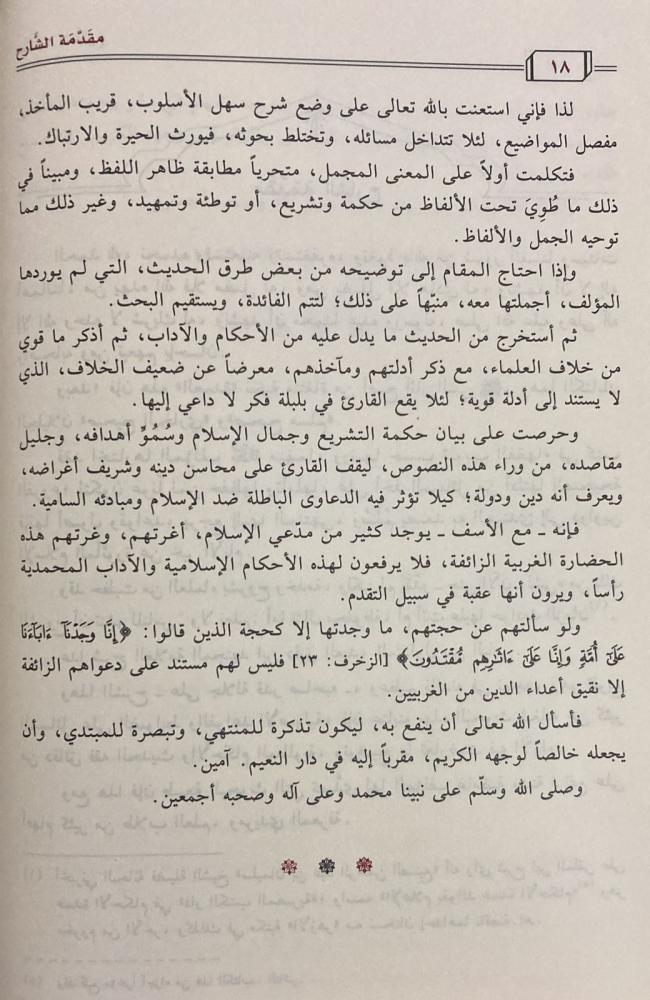 مقَدّمَة الشَّارح
١٨
لذا فإني استعنت بالله تعالى على وضع شرح سهل الأسلوب، قريب المأخذ،
مفصل المواضيع، لئلا تتداخل مسائله، وتختلط بحوثه، فيورث الحيرة والارتباك.
فتكلمت أولاً على المعنى المجمل، متحرياً مطابقة ظاهر اللفظ، ومبيناً في
ذلك ما طُوِيَ تحت الألفاظ من حكمة وتشريع، أو توطئة وتمهيد، وغير ذلك مما
توحيه الجمل والألفاظ.
وإذا احتاج المقام إلى توضيحه من بعض طرق الحديث، التي لم يوردها
المؤلف، أجملتها معه، منبّهاً على ذلك؛ لتتم الفائدة، ويستقيم البحث.
ثم أستخرج من الحديث ما يدل عليه من الأحكام والآداب، ثم أذكر ما قوي
من خلاف العلماء، مع ذكر أدلتهم ومآخذهم، معرضاً عن ضعيف الخلاف، الذي
لا يستند إلى أدلة قوية؛ لئلا يقع القارئ في بلبلة فكر لا داعي إليها.
وحرصت على بيان حكمة التشريع وجمال الإسلام وسُمُوِّ أهدافه، وجليل
مقاصده، من وراء هذه النصوص، ليقف القارئ على محاسن دينه وشريف أغراضه،
ويعرف أنه دين ودولة؛ كيلا تؤثر فيه الدعاوى الباطلة ضد الإسلام ومبادئه السامية.
فإنه ـ مع الأسف ـ يوجد كثير من مدّعي الإسلام، أغرتهم، وغرتهم هذه
الحضارة الغربية الزائفة، فلا يرفعون لهذه الأحكام الإسلامية والآداب المحمدية
رأساً، ويرون أنها عقبة في سبيل التقدم.
ولو سألتهم عن حجتهم، ما وجدتها إلا كحجة الذين قالوا: ﴿إِنَّا وَجَدْنَآ ءَابَآءَنَا
عَلَىٰٓ أُمَّةٍ وَإِنَّا عَلَىٰٓ ءَاثَٰرِهِم مُّقْتَدُونَ﴾ [الزخرف: ٢٣] فليس لهم مستند على دعواهم الزائفة
إلا نقيق أعداء الدين من الغربيين.
فأسأل الله تعالى أن ينفع به، ليكون تذكرة للمنتهي، وتبصرة للمبتدي، وأن
يجعله خالصاً لوجهه الكريم، مقرباً إليه في دار النعيم. آمين.
وصلى الله وسلّم على نبينا محمد وعلى آله وصحبه أجمعين.